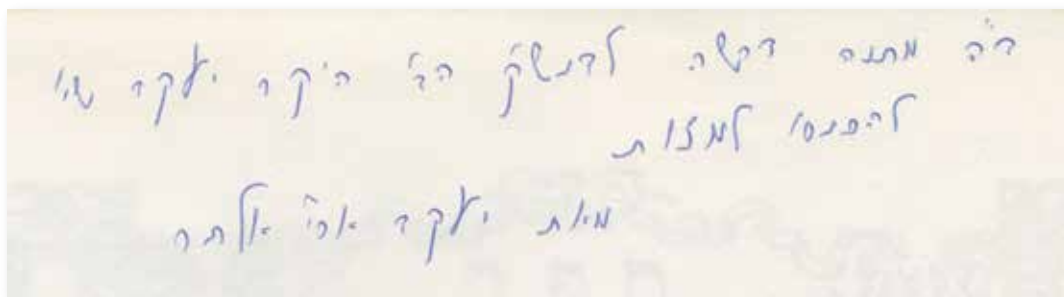 ב"ה מתנה דרשה לבנש"ק הב' היקר יעקב שי'
להכנסו למצות
מאת יעקב ארי' אלתר